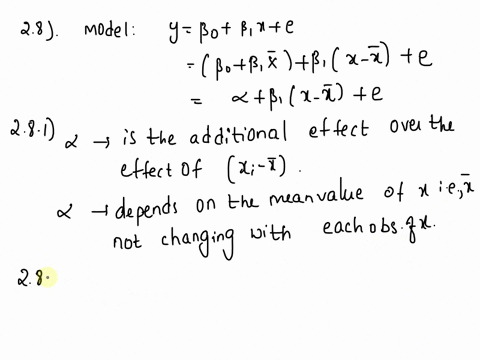 2.8). model: y = β0 + β1x + e
= (β0 + β1x̄) + β1(x - x̄) + e
= α + β1(x - x̄) + e
2.8.1) α → is the additional effect over the
effect of (xi - x̄).
α → depends on the mean value of x i.e, x̄
not changing with each obs. of x.
2.8.